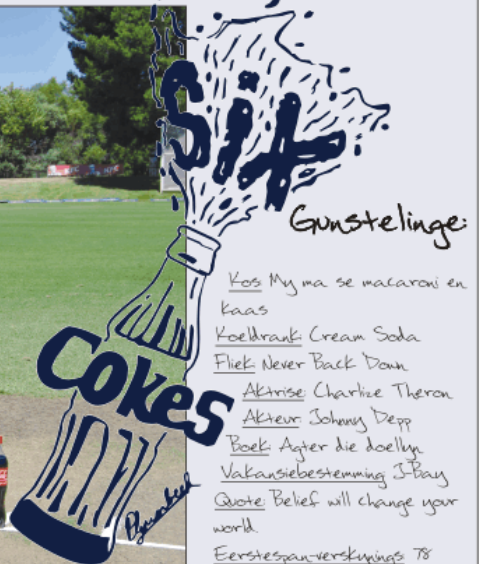 Six
Cokes
Gunstelinge:
Kos: My ma se macaroni en
kaas
Koeldrank: Cream Soda
Fliek: Never Back Down
Aktrise: Charlize Theron
Akteur: Johnny Depp
Boek: Agter die doellyn
Vakansiebestemming: J-Bay
Quote: Belief will change your
world
Eerstespan-verskynings: 78